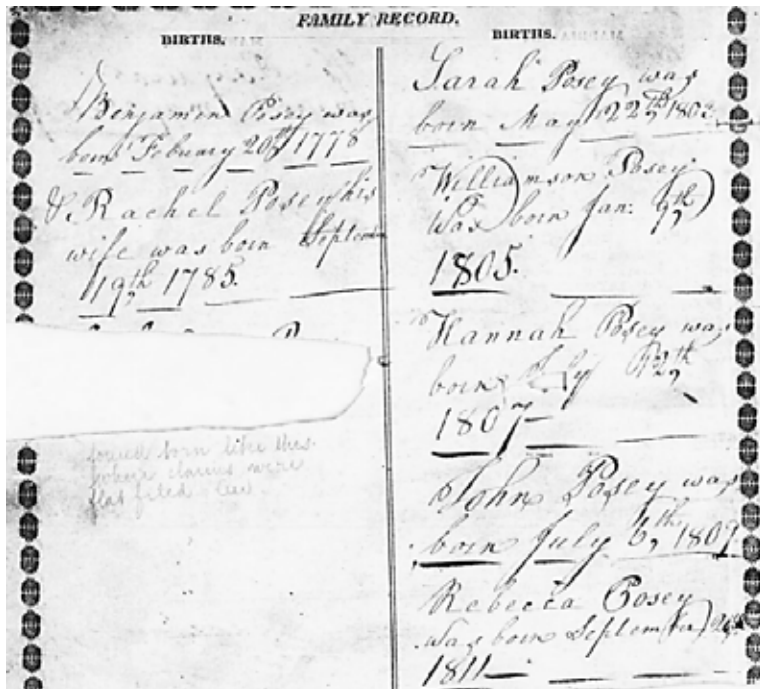 FAMILY RECORD.
BIRTHS.
Benjamin Posey was
born Febuary 20th 1778
& Rachel Posey his
wife was born Septem
19th 1785.
found torn like this
when claims were
flat filed
BIRTHS.
Sarah Posey was
born May 22nd 1803
Williamson Posey
Was born Jan. 9th
1805.
Hannah Posey was
born July 12th
1807
John Posey was
born July 6th 1809
Rebecca Posey
was born September
1811